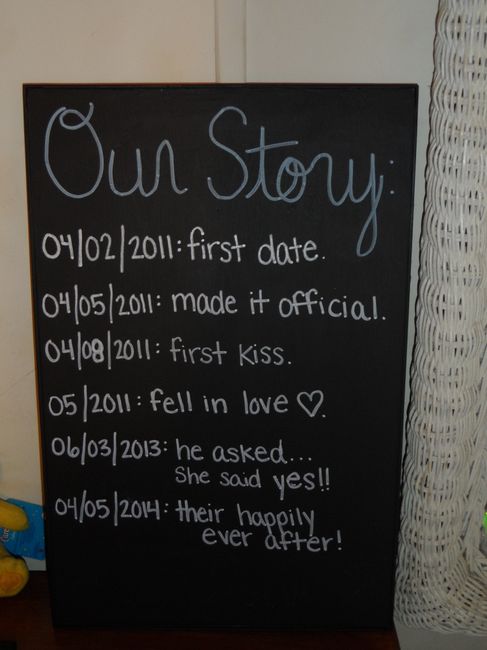 Our Story:
04/02/2011: first date.
04/05/2011: made it official.
04/08/2011: first kiss.
05/2011: fell in love ♡.
06/03/2013: he asked...
She said yes!!
04/05/2014: their happily
ever after!